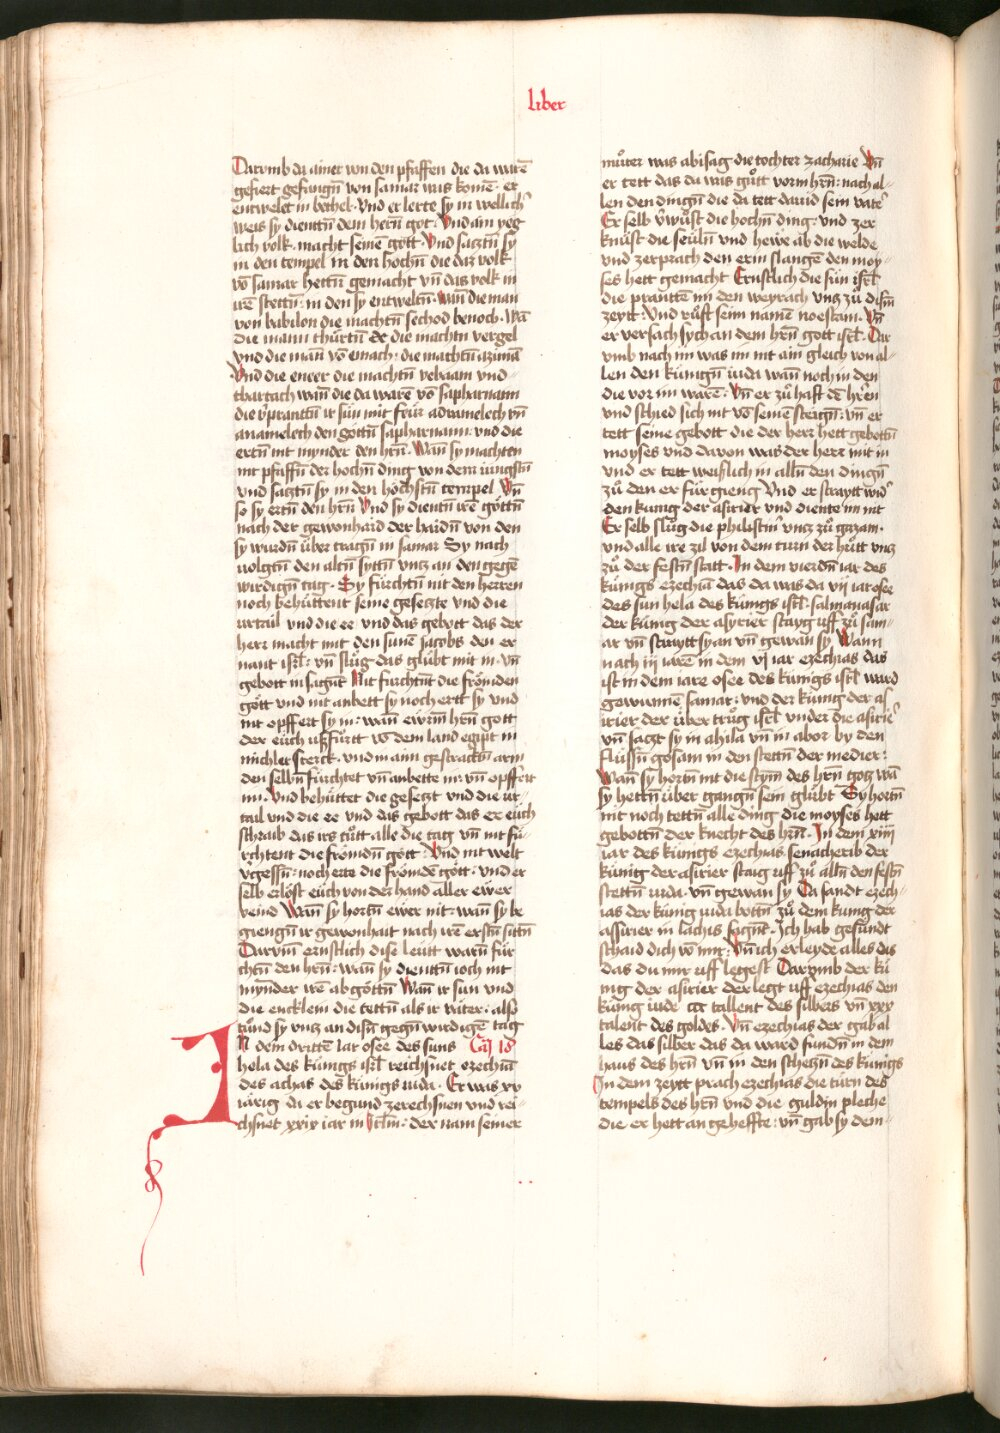 liber
Darvmb da ainer von den pfaffen die da warē
gefiert gefangn̄ von samar was komē · er
entwelet in bethel · Vnd er lerte sy in wellich’
weis sy dientn̄ dem hern̄ got · Vnd ain yeg
lich volk · macht seinē gott · Vnd sacztn̄ sy
in den tempel in den hochn̄ die daz volk
vō samar hettn̄ gemacht vn̄ das volk in
irē stettn̄ : in den sy entweltn̄ · Wan̄ die man
von babilon die machtn̄ sechod benoch · Wā
die mann thurtn̄ Er die machtn vergel
vnd die man̄ vō emach : die machtn̄ azimā
Vnd die eneer die machtn̄ vebaam vnd
thartach wann̄ die da warē vō sapharnaim
die v’prantn̄ ir sün mit feür adramelech vn̄
anamelech den gottn̄ sapharnaim : vnd die
ertn̄ nit mynder den hrn̄ · Wan̄ sy machten
mt pfaffn̄ der hochn̄ ding von dem iungstn̄
vnd sacztn̄ sy in den höchstn̄ tempel Vn̄
so sy ertn̄ den hrn̄ Vnd sy dientn̄ irē göttn̄
nach der gewonhard der haidn̄ von den
sy wurdn̄ über tragn̄ in samar Sy nach
volgtn̄ den altn̄ syttn̄ vncz an den gegē
wirdign̄ tag · Sy fürchtn̄ nit den herren
noch behüttent seine gesetzte vnd die
vrtail vnd die ee vnd das gebott das der
herr macht mit den sunē jacobs den er
nant isrl̄ : vn̄ slůg das glübt mit in · vn̄
gebott in sagnt Nit fürchtnt die frömden
gött vnd nit anbett sy noch ertt sy vnd
nit opffert sy in : wan̄ ewrm hrn̄ gott
der eüch ußfůrtt vō dem land egipt in
michler sterck · vnd in aim gestracktn̄ arm
den selbn̄ fürchtet vn̄ anbette in : vn̄ opffert
im · Vnd behüttet die gesetzt vnd die ur
tail vnd die ee vnd das gebott das er eüch
schraib das irs tütt alle die tag vn̄ nit fü
rchtent die frömdn̄ gött : Vnd nit welt
v’gessn̄ : noch erte die frömde gött · vnd er
selb erlöst eüch von der hand aller ewer
veind Wan̄ sy hortn̄ ewer nit : wan̄ sy be
giengn̄ ir gewonhait nach irē erstn̄ sittn̄
Darvm̄ ernstlich dise leütt warn̄ für
chtn̄ den hrn̄ : wan̄ sy dienttn̄ ioch nit
mynder irē abgöttn̄ Wan̄ ir sün vnd
die encklein die tettn̄ als ir väter : also
tůnd sy vncz an disn̄ gegn̄ wirdigē tag
IN dem drittē iar osee des suns Ca̅ 18
hela des künigs isrl̄ reichsnet ezechiā
des achas des künigs iuda · Er was xv
iärig da er begund ze rechsnen vnd rei
chsnet xxix iar in Jrl̄m · der nam seiner
můter was abisag die tochter zacharie Vn̄
er tett das da was gůtt vorm hrn̄ : nach al
len den dingn̄ die da tett dauid sein vater
Er selb v’wůst die hochn̄ ding · vnd zer
knüst die seüln̄ vnd hewe ab die welde
vnd zerprach den erin slangē den moy
ses hett gemacht Ernstlich die sün isrl̄
die prantē im den weyrach vncz zů disn̄
zeytt : Vnd růft sein namē noestam · Vn̄
er versach sych an dem hrn̄ gott isrl̄ · Dar
vmb nach im was im nit ain gleich von al
len den künign̄ iuda wan̄ noch in den
die vor im warē · Vn̄ er zů haft dē hrēn
vnd schied sich nit vō seinē steign̄ : vn̄ er
tett seine gebott die der herr hett gebottn̄
moyses vnd davon was der herr mit in
vnd er tett weislich in alln̄ den dingn̄
zů den er für gieng Vnd er straytt wid’
den künig der asirier vnd diente im nit
Er selb slůg die philistin’ vncz zů gazam ·
vnd alle ire zil von dem turn der hůtt vncz
zů der festn̄ statt · In dem vierdn̄ iar des
künigs ezechia das da was da vij iar osee
des sun hela des künigs isrl̄ · salmanasar
der künig der asyrier stayg uff zů sam
ar vn̄ straytt sy an vn̄ gewan sy Wann
nach iij iarē in dem vj iar ezechias das
ist in dem iare osee des künigs isrl̄ ward
gewunnē samar : vnd der künig der as
sirier der über trůg isrl̄ vnder die asirie’
vn̄ saczt sy in ahila vn̄ in abor by den
flüssn̄ gosam in den stettn̄ der medier :
Wan̄ sy hortn̄ nit die stym̄ des hrn̄ gotz wā
sy hettn̄ über gangn̄ sein glübt Sy hortn̄
nit noch tettn̄ alle ding die moyses hett
gebottn̄ der knecht des hrn̄ · In dem xiiij
iar des künigs ezechias senacherib der
künig der asirier staig uff zů alln̄ den festn̄
stettn̄ iuda · vn̄ gewan sy Da sandt ezech
ias der künig iuda bottn̄ zů dem künig der
assirier in lachis sagnt · Ich hab gesündt
schaid dich vō mir : Vn̄ ich erleyde alles das
das du mir uff legest Darvmb der kü
nig der asirier der legt uff ezechias den
künig iude ccc tallent des silbers vn̄ xxx
talent des goldes · Vn̄ ezechias der gab al
les das silber das da ward fundn̄ in dem
haus des hrn̄ vn̄ in den schetzn̄ des künigs
In dem zeytt prach ezechias die türn des
tempels des hrn̄ vnd die guldin pleche
die er hett an geheffte : vn̄ gab sy dem